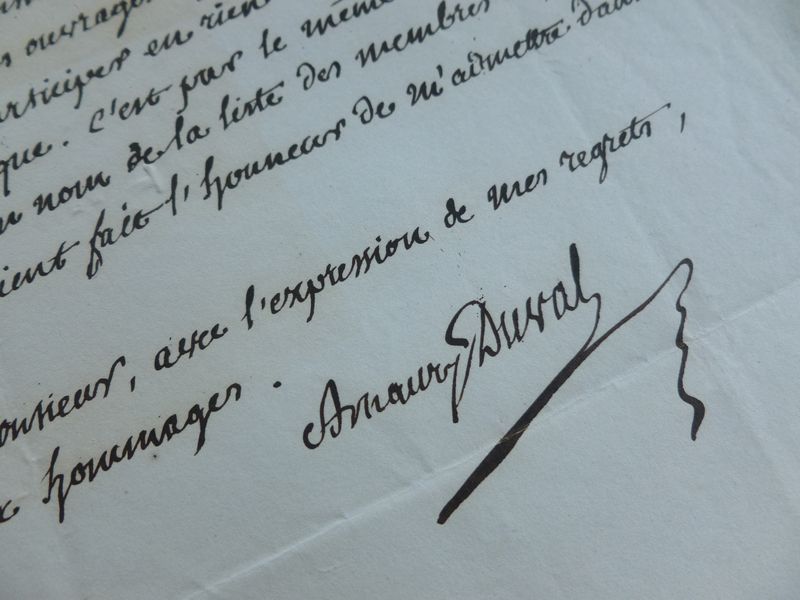 ouvrages
participer en rien
que. C'est par le même
nom de la liste des membres
aient fait l'honneur de m'admettre dans
Monsieur, avec l'expression de mes regrets,
hommages.
Amaury Duval